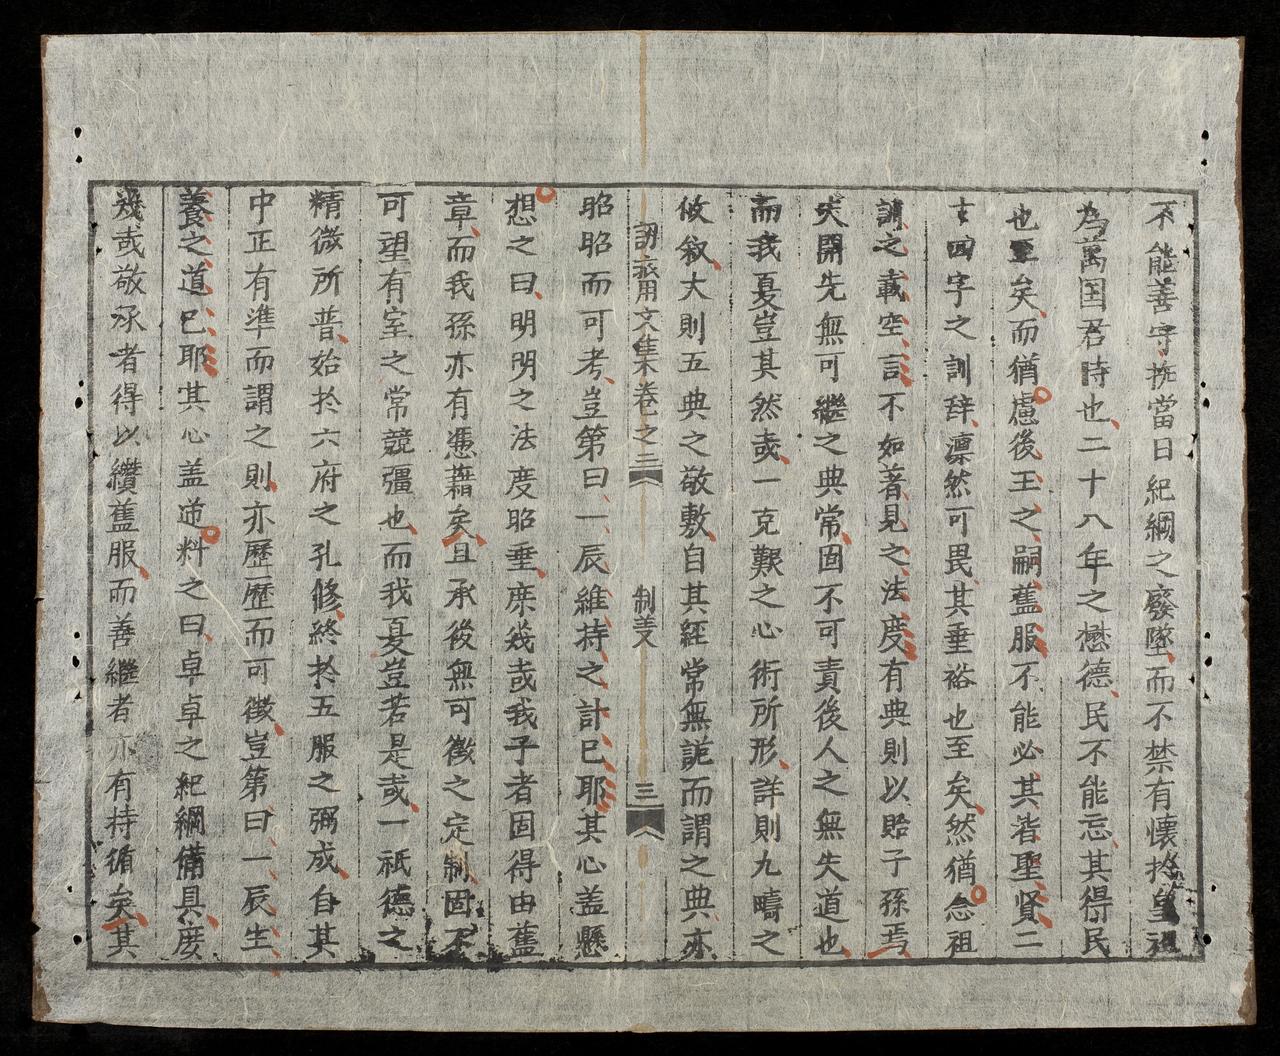 不能善守抚當日紀綱之廢墜而不禁有懷於皇祖
為萬国君時也二十八年之懋德民不能忘其得民
也至矣而猶慮後王之嗣舊服不能必其皆聖賢二
十四字之訓辞凛然可畏其垂裕也至矣然猶念祖
謨之載空言不如著見之法度有典則以貽子孫焉
夫開先無可繼之典常固不可責後人之無失道也
而我夏豈其然㢤一克艱之心術所形詳則九疇之
攸叙大則五典之敬敷自其經常無詭而謂之典亦
昭昭而可考豈第曰一辰維持之計已耶其心盖懸
想之曰明明之法度昭垂庶幾㢤我子者固得由舊
章而我孫亦有憑藉矣且承後無可徵之定制固不
可望有室之常競彊也而我夏豈若是㢤一祇德之
精微所普始於六府之孔修終於五服之弼成自其
中正有準而謂之則亦歷歷而可徵豈第曰一辰生
養之道已耶其心盖逆料之曰卓卓之紀綱備具庶
幾㢤敬承者得以纘舊服而善繼者亦有持循矣其
用文集卷之三
制義
三